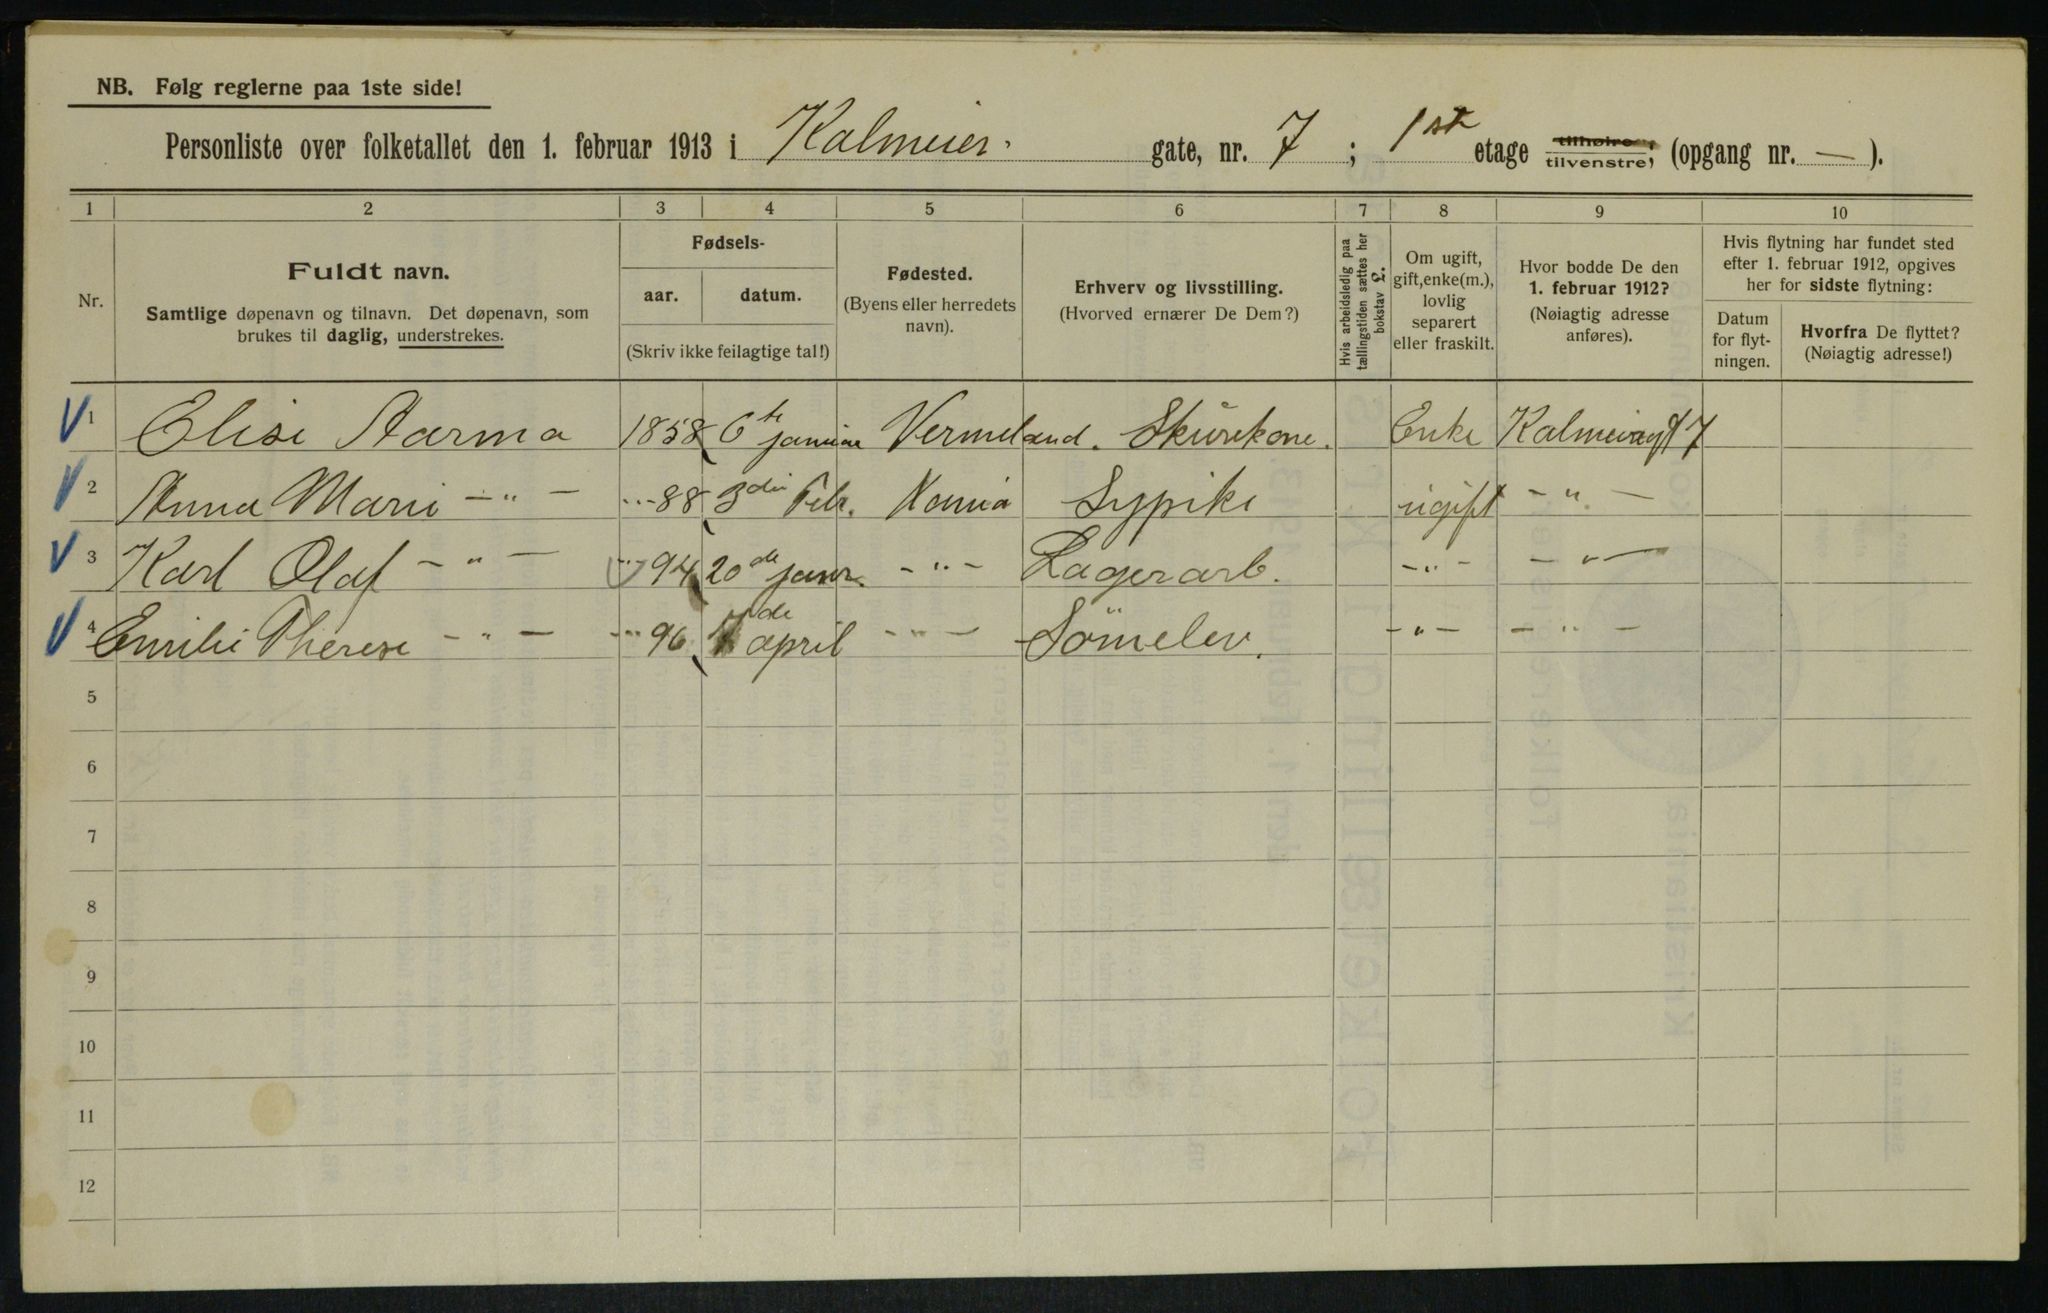 NB. Følg reglerne paa 1ste side!
Personliste over folketallet den 1. februar 1913 i Kalmeier. gate, nr. 7 ; 1ste etage tilhøire, tilvenstre, (opgang nr. — ).
1 2 3 4 5 6 7 8 9 10
Nr.
Fuldt navn.
Samtlige døpenavn og tilnavn. Det døpenavn, som
brukes til daglig, understrekes.
Fødsels-
aar. datum.
(Skriv ikke feilagtige tal!)
Fødested.
(Byens eller herredets
navn).
Erhverv og livsstilling.
(Hvorved ernærer De Dem?)
Hvis arbeidsledig paa
tællingstiden sættes her
bokstav L.
Om ugift,
gift, enke(m.),
lovlig
separert
eller fraskilt.
Hvor bodde De den
1. februar 1912?
(Nøiagtig adresse
anføres).
Hvis flytning har fundet sted
efter 1. februar 1912, opgives
her for sidste flytning:
Datum
for flyt-
ningen.
Hvorfra De flyttet?
(Nøiagtig adresse!)
1 Elise Aarma 1858 6te januar Vermeland. Skurekone. Enke Kalmeiergt 7
2 Anna Marie -"- ...88 3die Febr. Kania Sypike ugift -"-
3 Karl Olaf -"- ...94 20de janr. -"- Lagerarb. -"- -"-
4 Emilie Therese -"- ...96 de april -"- Sömelev. -"- -"-
5
6
7
8
9
10
11
12